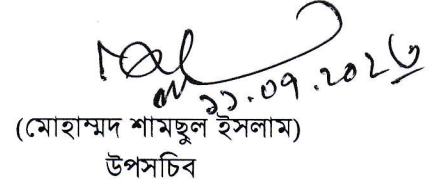 ১১.০৭.২০২৩
(মোহাম্মদ শামছুল ইসলাম)
উপসচিব